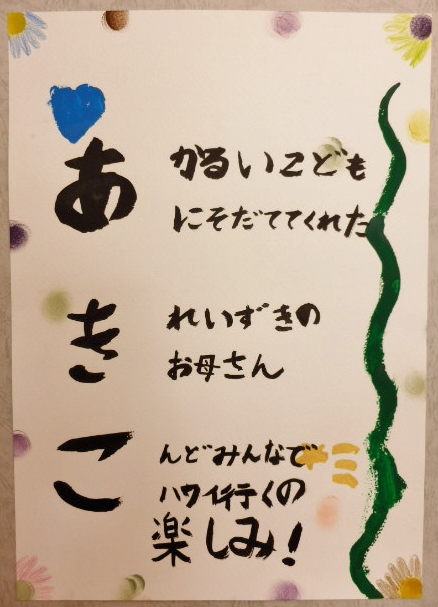 あかるいこども
にそだててくれた
きれいずきの
お母さん
こんどみんなで
ハワイ行くの
楽しみ!